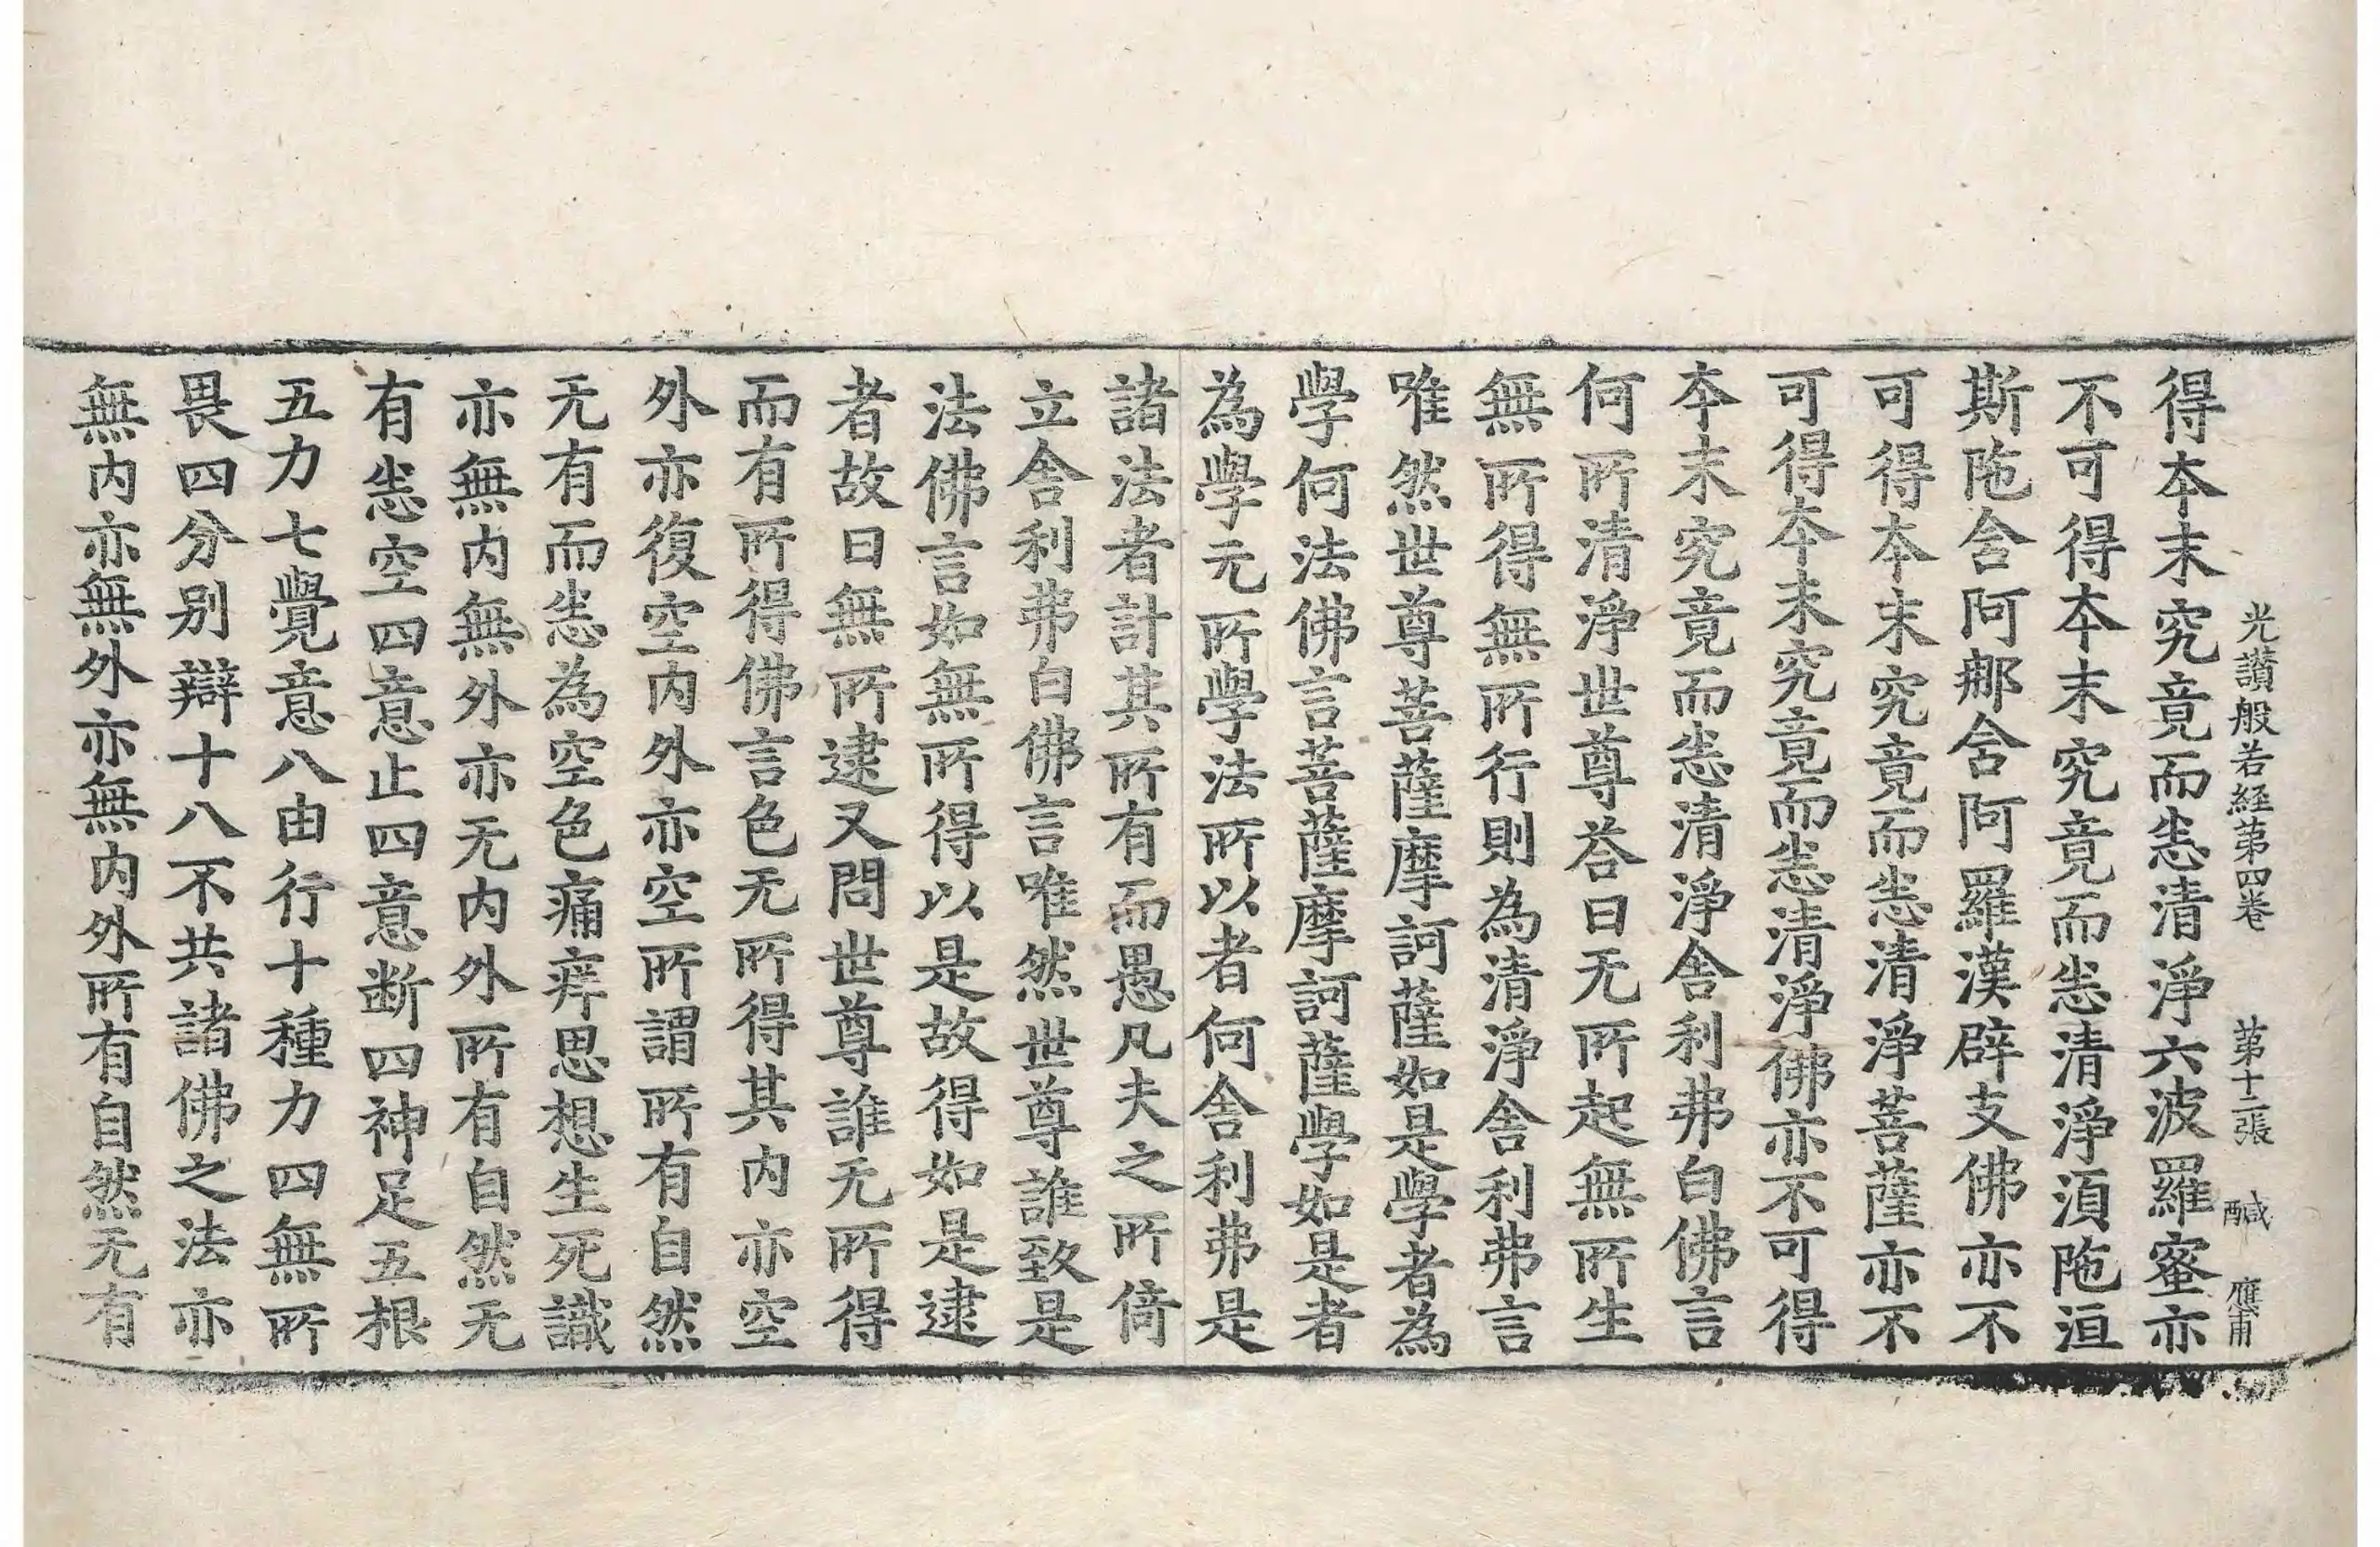 光讃般若経第四巻 第十二張 醎 應甫
得夲末究竟而恙清淨六波羅蜜亦
不可得夲末究竟而恙清淨湏陁洹
斯陁含阿那含阿羅漢辟支佛亦不
可得夲末究竟而恙清淨菩薩亦不
可得夲末究竟而恙清淨佛亦不可得
夲末究竟而恙清淨舎利弗白佛言
何所清淨世尊荅曰无所起無所生
無所得無所行則為清淨舎利弗言
唯然世尊菩薩摩訶薩如是學者為
學何法佛言菩薩摩訶薩學如是者
為學无所學法所以者何舎利弗是
諸法者計其所有而愚凡夫之所倚
立舎利弗白佛言唯然世尊誰致是
法佛言如無所得以是故得如是逮
者故曰無所逮又問世尊誰无所得
而有所得佛言色无所得其内亦空
外亦復空内外亦空所謂所有自然
无有而恙為空色痛痒思想生死識
亦無内無外亦无内外所有自然无
有恙空四意止四意断四神足五根
五力七覺意八由行十種力四無所
畏四分别辯十八不共諸佛之法亦
無内亦無外亦無内外所有自然无有